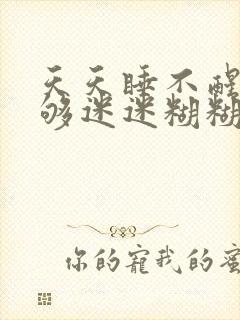 天天睡不醒
够迷迷糊糊
你的宠我的蜜